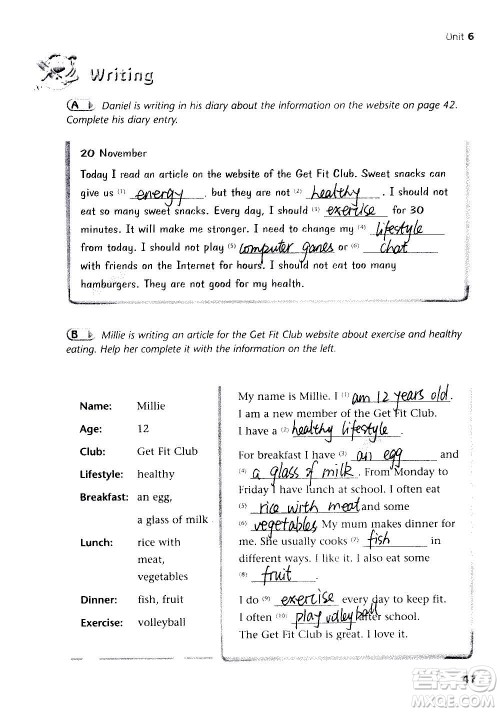 Unit 6
Writing
A Daniel is writing in his diary about the information on the website on page 42.
Complete his diary entry.
20 November
Today I read an article on the website of the Get Fit Club. Sweet snacks can
give us (1) energy, but they are not (2) healthy. I should not
eat so many sweet snacks. Every day, I should (3) exercise for 30
minutes. It will make me stronger. I need to change my (4) lifestyle
from today. I should not play (5) computer games or (6) chat
with friends on the Internet for hours. I should not eat too many
hamburgers. They are not good for my health.
B Millie is writing an article for the Get Fit Club website about exercise and healthy
eating. Help her complete it with the information on the left.
Name: Millie
Age: 12
Club: Get Fit Club
Lifestyle: healthy
Breakfast: an egg,
a glass of milk
Lunch: rice with
meat,
vegetables
Dinner: fish, fruit
Exercise: volleyball
My name is Millie. I (1) am 12 years old.
I am a new member of the Get Fit Club.
I have a (2) healthy lifestyle.
For breakfast I have (3) an egg and
(4) a glass of milk. From Monday to
Friday I have lunch at school. I often eat
(5) rice with meat and some
(6) vegetables. My mum makes dinner for
me. She usually cooks (7) fish in
different ways. I like it. I also eat some
(8) fruit.
I do (9) exercise every day to keep fit.
I often (10) play volleyball after school.
The Get Fit Club is great. I love it.
47
答案圈
MXQE.COM